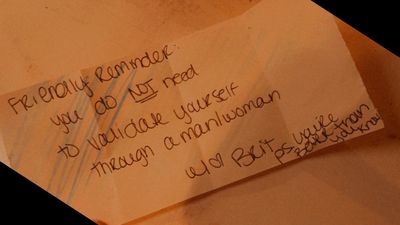 Friendly Reminder:
you do NOT need
to validate yourself
through a man/woman
w/♡ Brit
ps. you're
Better than
you
know